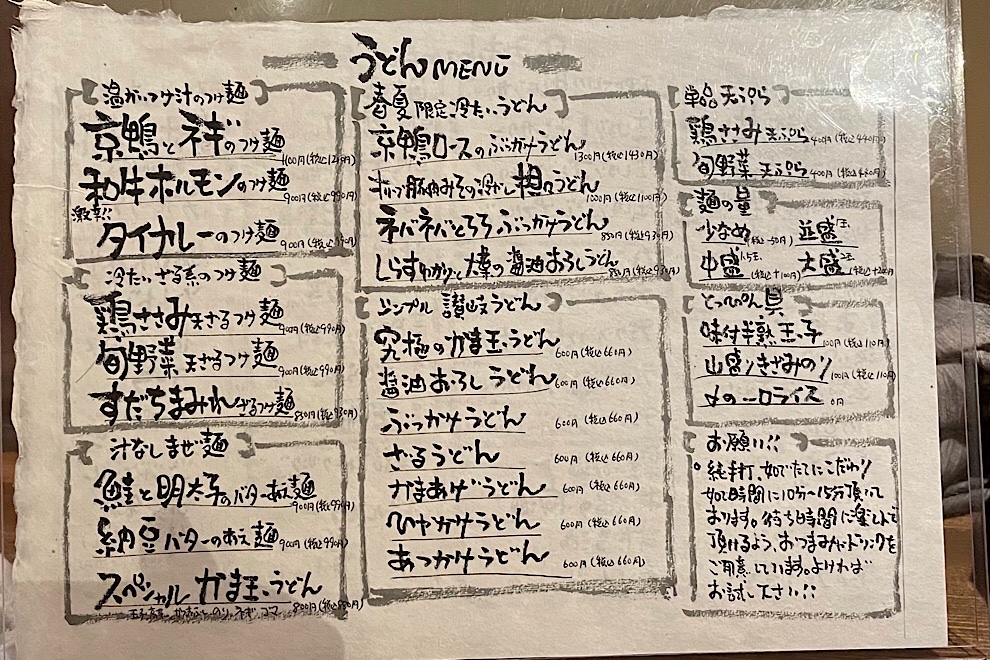 うどんMENU
温かいつけ汁のつけ麺
京鴨とネギのつけ麺
1100円(税込1210円)
和牛ホルモンのつけ麺
900円(税込990円)
激辛!!
タイカレーのつけ麺
900円(税込990円)
冷たいざる系のつけ麺
鶏ささみ天ざるつけ麺
900円(税込990円)
旬野菜天ざるつけ麺
900円(税込990円)
すだちまみれざるつけ麺
850円(税込930円)
汁なしまぜ麺
鮭と明太子のバターあえ麺
900円(税込990円)
納豆バターのあえ麺
900円(税込990円)
スペシャルかま玉うどん
800円(税込880円)
のり、ネギ、ゴマ
春夏限定冷たいうどん
京鴨ロースのぶっかけうどん
1300円(税込1430円)
豚肉みその冷やし担々うどん
1000円(税込1100円)
ネバネバとろろぶっかけうどん
850円(税込930円)
しらすわかめと大葉の醤油おろしうどん
850円(税込930円)
シンプル讃岐うどん
究極のかま玉うどん
600円(税込660円)
醤油おろしうどん
600円(税込660円)
ぶっかけうどん
600円(税込660円)
ざるうどん
600円(税込660円)
かまあげうどん
600円(税込660円)
ひやかけうどん
600円(税込660円)
あつかけうどん
600円(税込660円)
単品天ぷら
鶏ささみ天ぷら
400円(税込440円)
旬野菜天ぷら
400円(税込440円)
麺の量
少なめ(税込-50円) 並盛1玉
中盛1.5玉(税込+100円) 大盛2玉(税込+200円)
とっぴんぐ具
味付半熟玉子
100円(税込110円)
山盛りきざみのり
100円(税込110円)
〆の一口ライス
0円
お願い!!
純手打、茹でたてにこだわり
茹時間に10分〜15分頂いて
おります。待ち時間に楽しんで
頂けるよう、おつまみにドリンクを
ご用意しています。よければ
お試し下さい!!